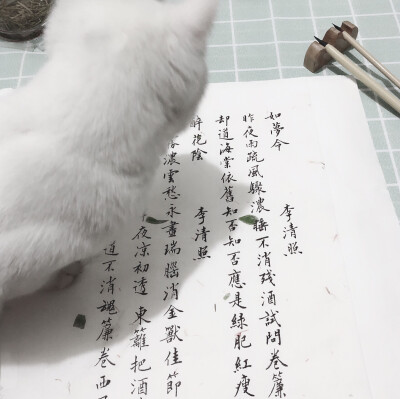 如夢令 李清照
昨夜雨疏風驟濃睡不消残酒試問卷簾
却道海棠依舊知否知否應是綠肥紅瘦
醉花陰 李清照
濃雲愁永晝瑞腦消金獸佳節
夜凉初透東籬把酒
道不消魂簾卷西